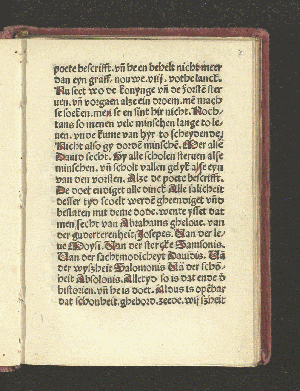 poete beschrifft. vñ he en behelt nicht meer
dan eyn graff. nouwe. viij. votbe lanck.
Nu seet wo de konynge vñ de forstē ster
uen. vñ vorgaen alze ein droem. mē mach
se soeken. men se en sint hir nicht. Noch-
tans so menen vele minschen lange to le
uen. vn de kume van hyr to scheydende.
Nicht also gy dordē minschē. Wer alse
Dauid secht. Gy alle scholen steruen alse
minschen. vñ scholt vallen gelyk alse eyn
van den vorsten. Alze de poete beschrifft.
De doet endiget alle dinck Alle salicheit
desser tyd scoelt werdē gheendiget vnd
beslaten mit deme dode. wente ysset dat
men secht van Abrahams gheloue. van
der guderterenheit Josepes. Van der le-
ue Moysi. Van der stercke Samsonis.
Van der sachtmodicheyt Dauidis. Vā
der wyszheit Salomonis Vā der schōn
heit Absolonis. Alletyd so is dat ende d
historien. vñ he is doet. Aldus is opēbar
dat schonheit. ghebord. zeede. wiszheit